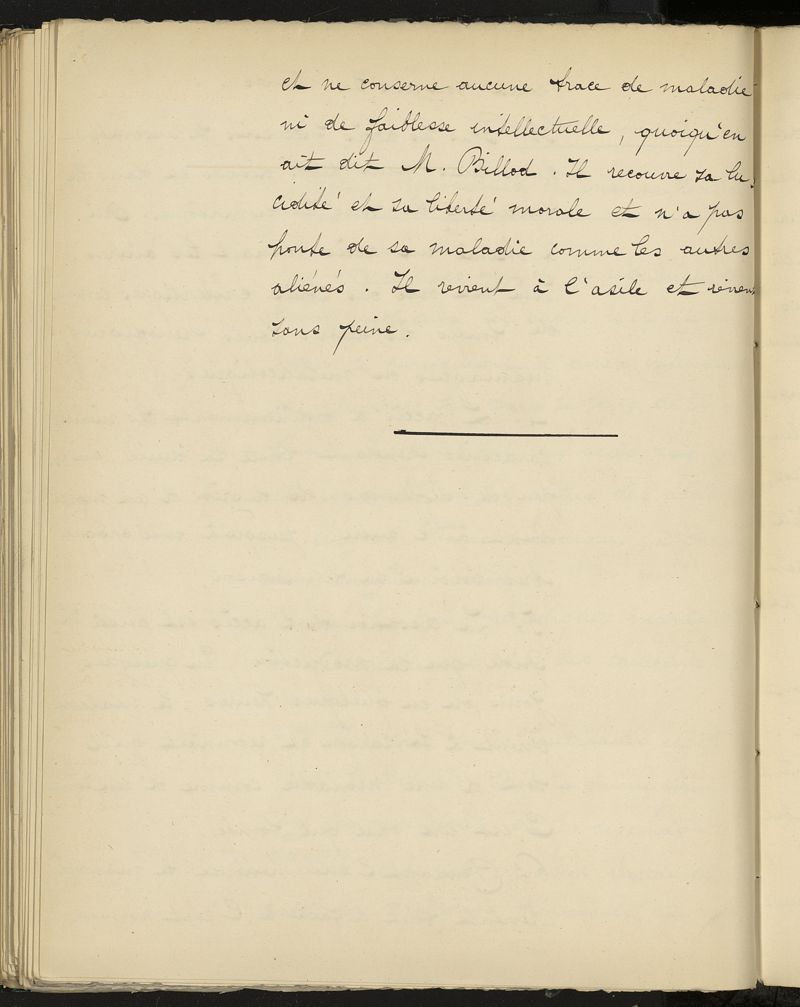 et ne conserve aucune trace de maladie
ni de faiblesse intellectuelle, quoiqu'en
ait dit M. Billod. Il recouvre sa lu
cidité et sa liberté morale et n'a pas
honte de sa maladie comme les autres
aliénés. Il revient à l'asile et revient
sans peine.